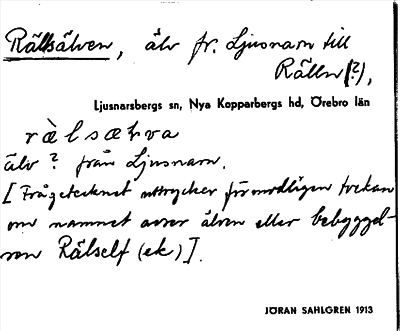 Rällsälven, älv fr. Ljusnarn till
Rälln (?),
Ljusnarsbergs sn, Nya Kopparbergs hd, Örebro län
ræ̀lsæɫva
älv? från Ljusnarn.
[Frågetecknet uttrycker förmodligen tvekan
om namnet avser älven eller bebyggel-
sen Rälself (ek)].
JÖRAN SAHLGREN 1913